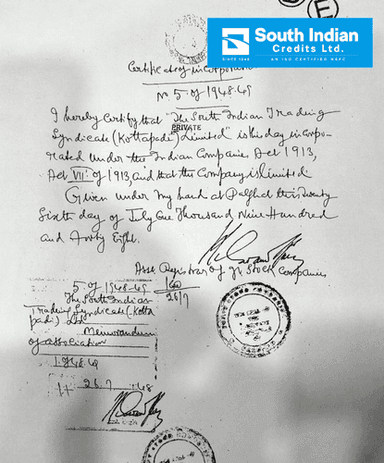 South Indian
Credits Ltd.
SINCE 1948
AN ISO CERTIFIED NBFC
E
Certificate of incorporation
No 5 of 1948-49
I hereby Certify that "The South Indian Trading
PRIVATE
Syndicate (Kottapadi) Limited" is this day incorpo-
rated under the Indian Companies Act 1913,
Act VII of 1913 and that the Company is limited
Given under my hand at Palghat this Twenty
Sixth day of July One Thousand Nine Hundred
and Forty Eight.
Asst Registrar of Jt Stock Companies
5 of 1948-49
The South Indian
Trading Syndicate (Kotta
padi) Ltd
Memorandum
of association
1948-49
26.7 48
26/7